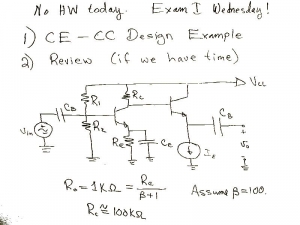 No HW today. Exam I Wednesday!
1) CE - CC Design Example
2) Review (if we have time)
Vcc
R1
Rc
CB
CB
Vin
R2
Re
Ce
Vo
Ro = 1KΩ = Rc / β+1
Assume β=100.
Rc ≅ 100KΩ